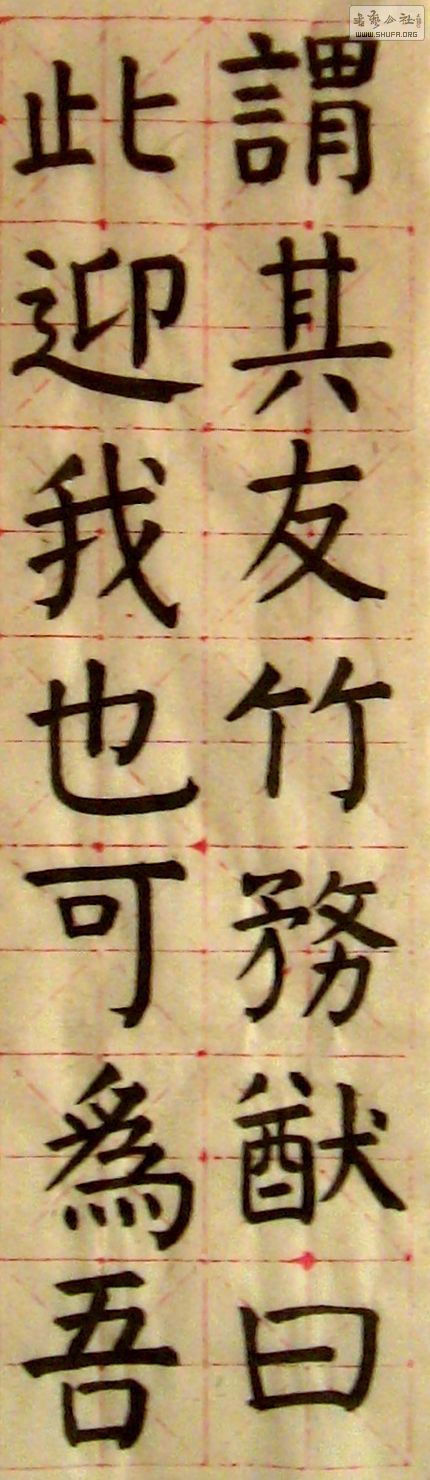 謂其友竹務猷曰
此迎我也可爲吾
书艺公社
WWW.SHUFA.ORG